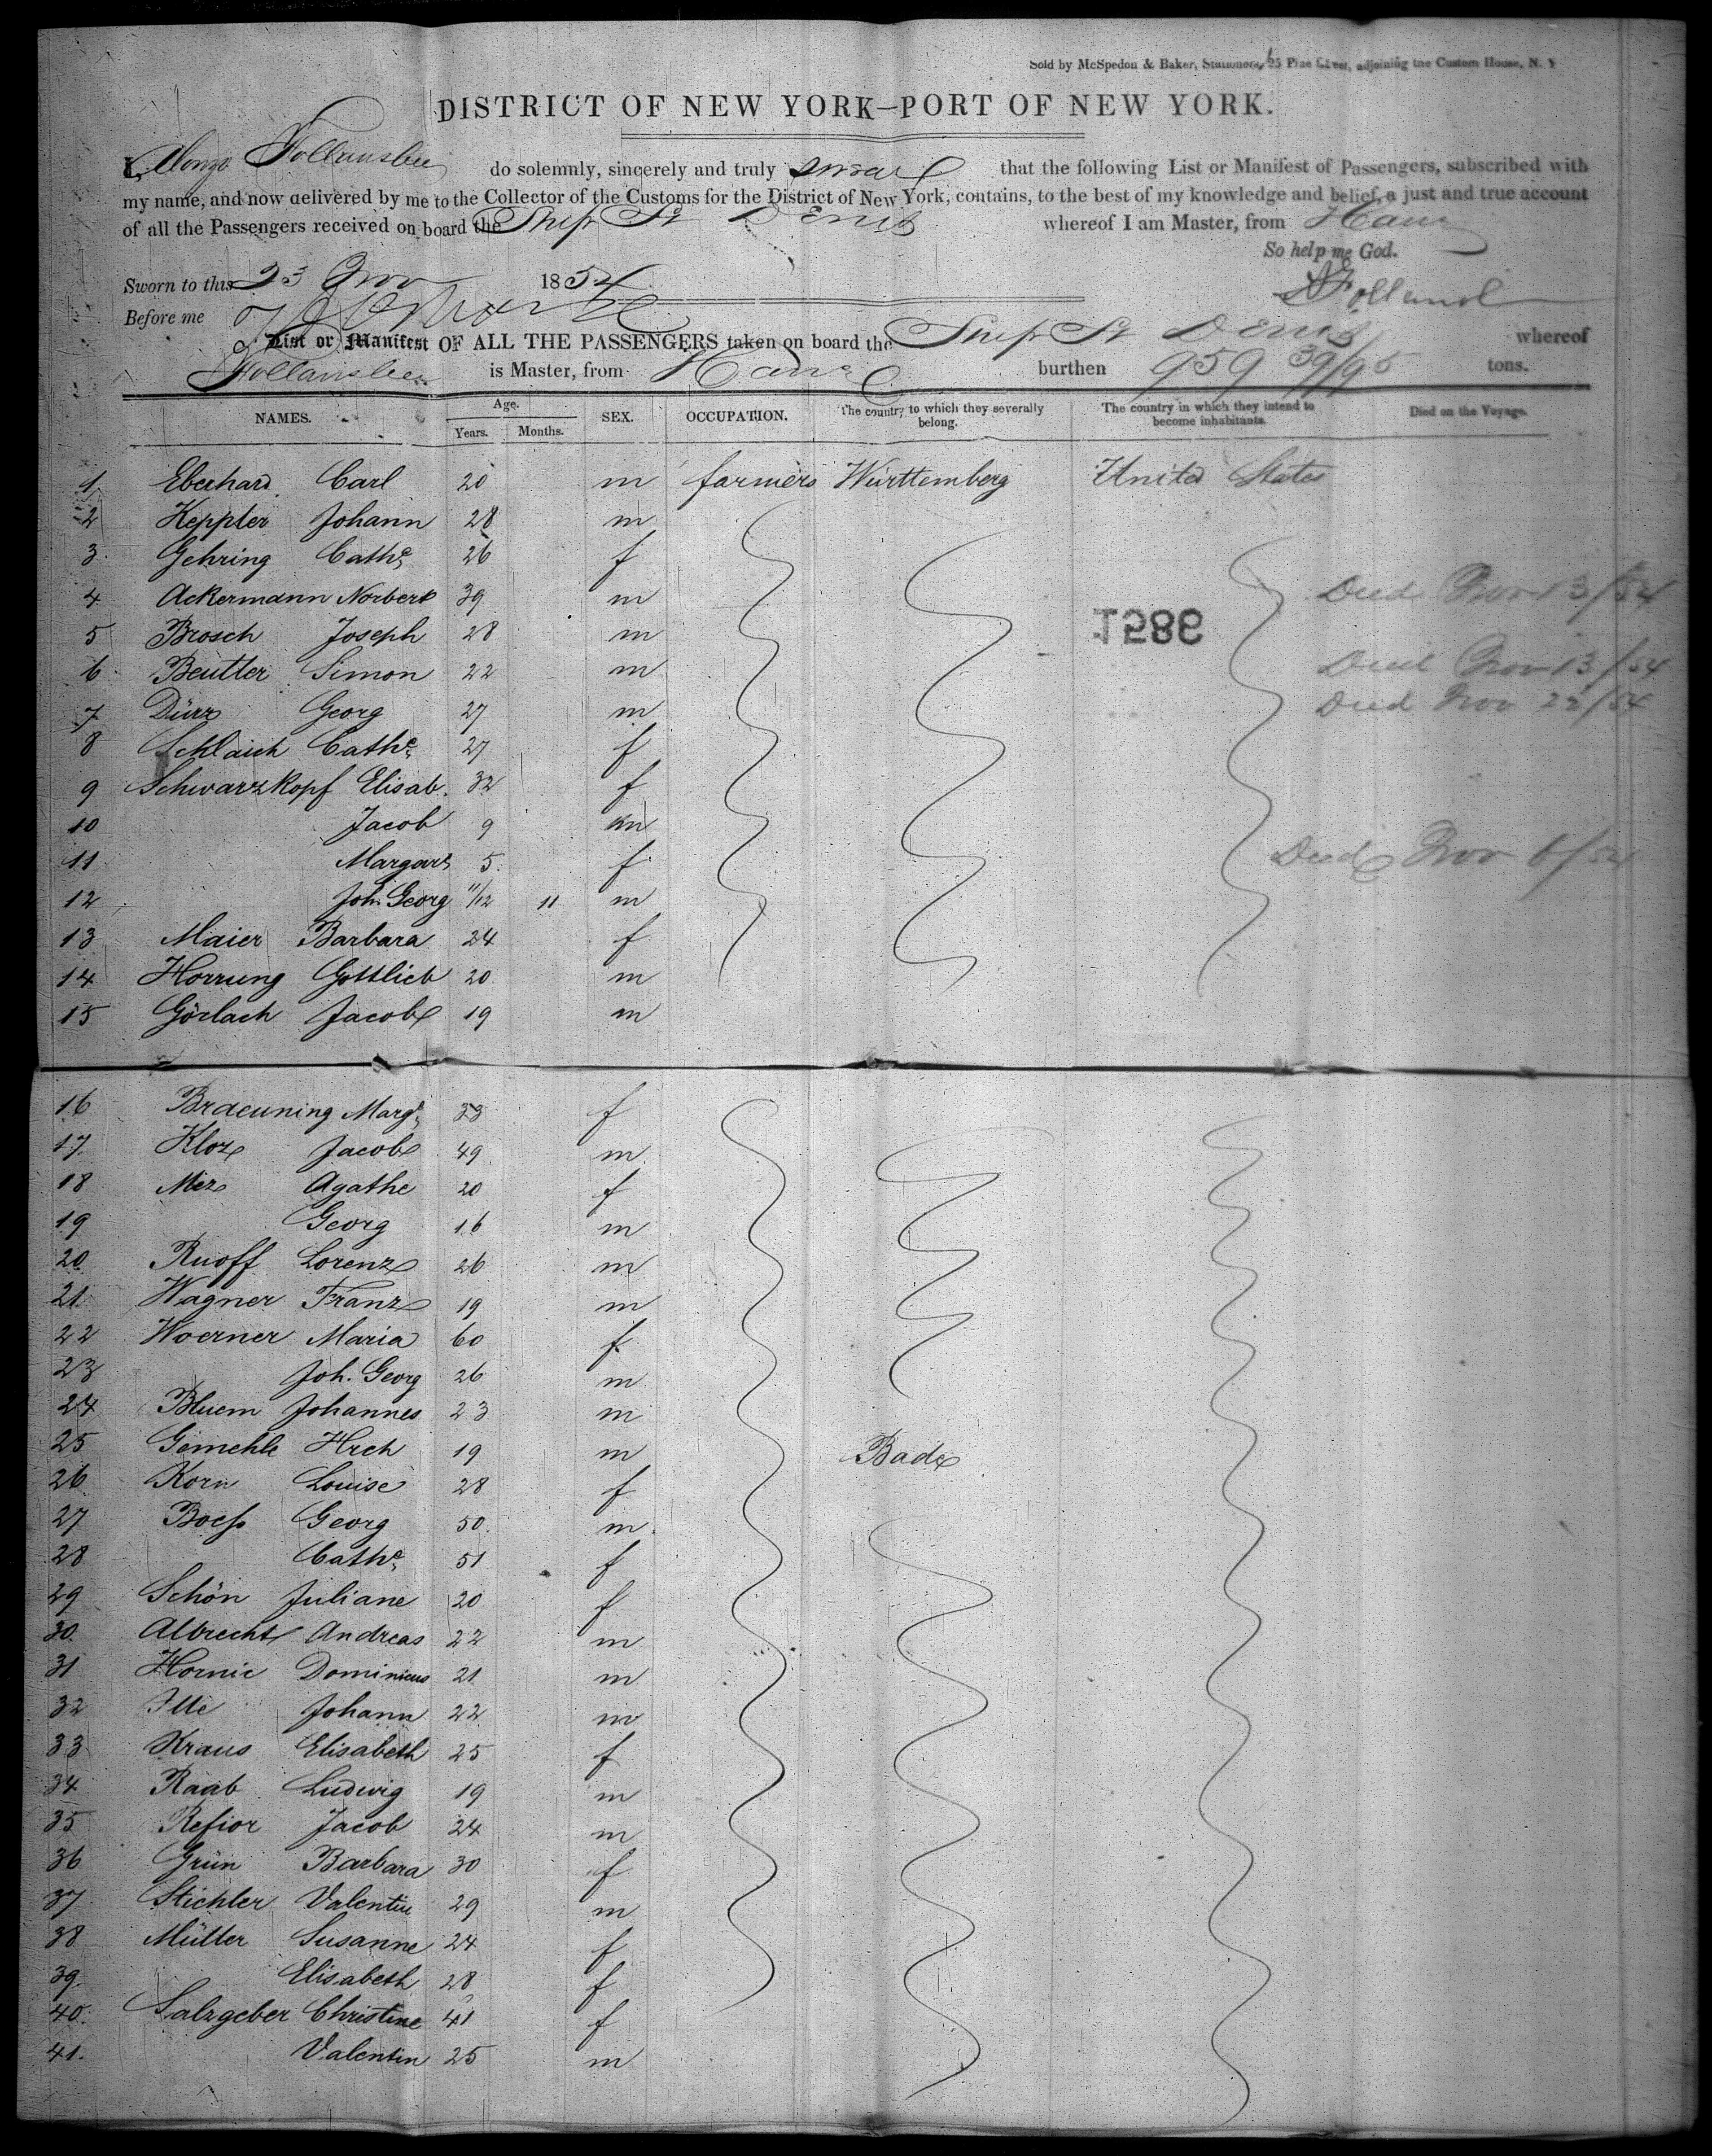 Sold by McSpedon & Baker, Stationers, 25 Pine Street, adjoining the Custom House, N. Y
DISTRICT OF NEW YORK—PORT OF NEW YORK.
I, Alonzo Follansbee do solemnly, sincerely and truly swear that the following List or Manifest of Passengers, subscribed with
my name, and now delivered by me to the Collector of the Customs for the District of New York, contains, to the best of my knowledge and belief, a just and true account
of all the Passengers received on board the Ship St Denis whereof I am Master, from Havre
So help me God.
Sworn to this 23 Nov 1854
Before me
List or Manifest OF ALL THE PASSENGERS taken on board the Ship St Denis whereof
Follansbee is Master, from Havre burthen 959 39/95 tons.
NAMES. Age. Years. Months. SEX. OCCUPATION. The country to which they severally belong. The country in which they intend to become inhabitants. Died on the Voyage.
1 Eberhard Carl 20 m farmers Württemberg United States
2 Keppler Johann 28 m
3 Gehring Cathe 26 f
4 Ackermann Norbert 39 m Died Nov 13/54
5 Brosch Joseph 28 m
6 Beutler Simon 22 m Died Nov 13/54
7 Dürr Georg 27 m Died Nov 22/54
8 Schlaich Cathe 27 f
9 Schwarzkopf Elisab. 32 f
10 Jacob 9 m
11 Margart 5 f Died Nov 6/54
12 Joh. Georg 11/12 11 m
13 Maier Barbara 24 f
14 Horrung Gottlieb 20 m
15 Görlach Jacob 19 m
16 Braeuning Marge 33 f
17 Kloz Jacob 49 m
18 Mez Agathe 20 f
19 Georg 16 m
20 Ruoff Lorenz 26 m
21 Wagner Franz 19 m
22 Woerner Maria 60 f
23 Joh. Georg 26 m
24 Bluem Johannes 23 m
25 Gemehle Hrch 19 m Bade
26 Korn Louise 28 f
27 Boess Georg 50 m
28 Cathe 51 f
29 Schön Juliane 20 f
30 Albrecht Andreas 22 m
31 Hornic Dominicus 21 m
32 Ille Johann 22 m
33 Kraus Elisabeth 25 f
34 Raab Ludwig 19 m
35 Refior Jacob 24 m
36 Grün Barbara 30 f
37 Stichler Valentin 29 m
38 Müller Susanne 24 f
39 Elisabeth 28 f
40 Salzgeber Christine 41 f
41 Valentin 25 m
1586